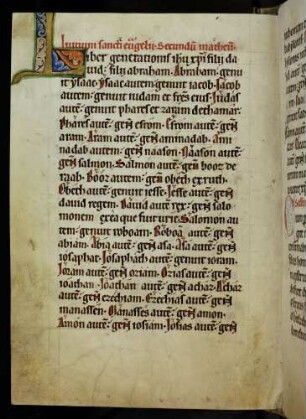 Inicium sancti euãgelii: Secundũ matheũ:
Liber generationis ihũ xpĩ filij da
uid: filij abraham. Abraham: genu
it ysaac. Ysaac autem: genuit iacob. Jacob
autem: genuit iudam et frẽs eius. Judas
autẽ: genuit phares et zaram de thamar.
Phares autẽ: geñ esrom. Esrom autẽ: geñ
aram. Aram autẽ: geñ aminadab. Ami
nadab autem: geñ naason. Naason autẽ:
geñ salmon. Salmon autẽ: geñ booz de
raab. Booz autem: geñ obeth ex ruth.
Obeth autẽ: genuit iesse. Jesse autẽ: geñ
dauid regem. Dauid autẽ rex: geñ salo
monem ex ea que fuit urie. Salomon au
tem: genuit roboam. Roboã autẽ: geñ
abiam. Abia autẽ: geñ asa. Asa autẽ: geñ
iosaphat. Josaphath autẽ: genuit ioram.
Joram autẽ: geñ oziam. Ozias autẽ: geñ
ioathan. Joathan autẽ: geñ achaz. Achaz
autẽ: geñ ezechiam. Ezechias autẽ: geñ
manassen. Manasses autẽ: geñ amon.
Amon autẽ: geñ iosiam. Josias autẽ: geñ